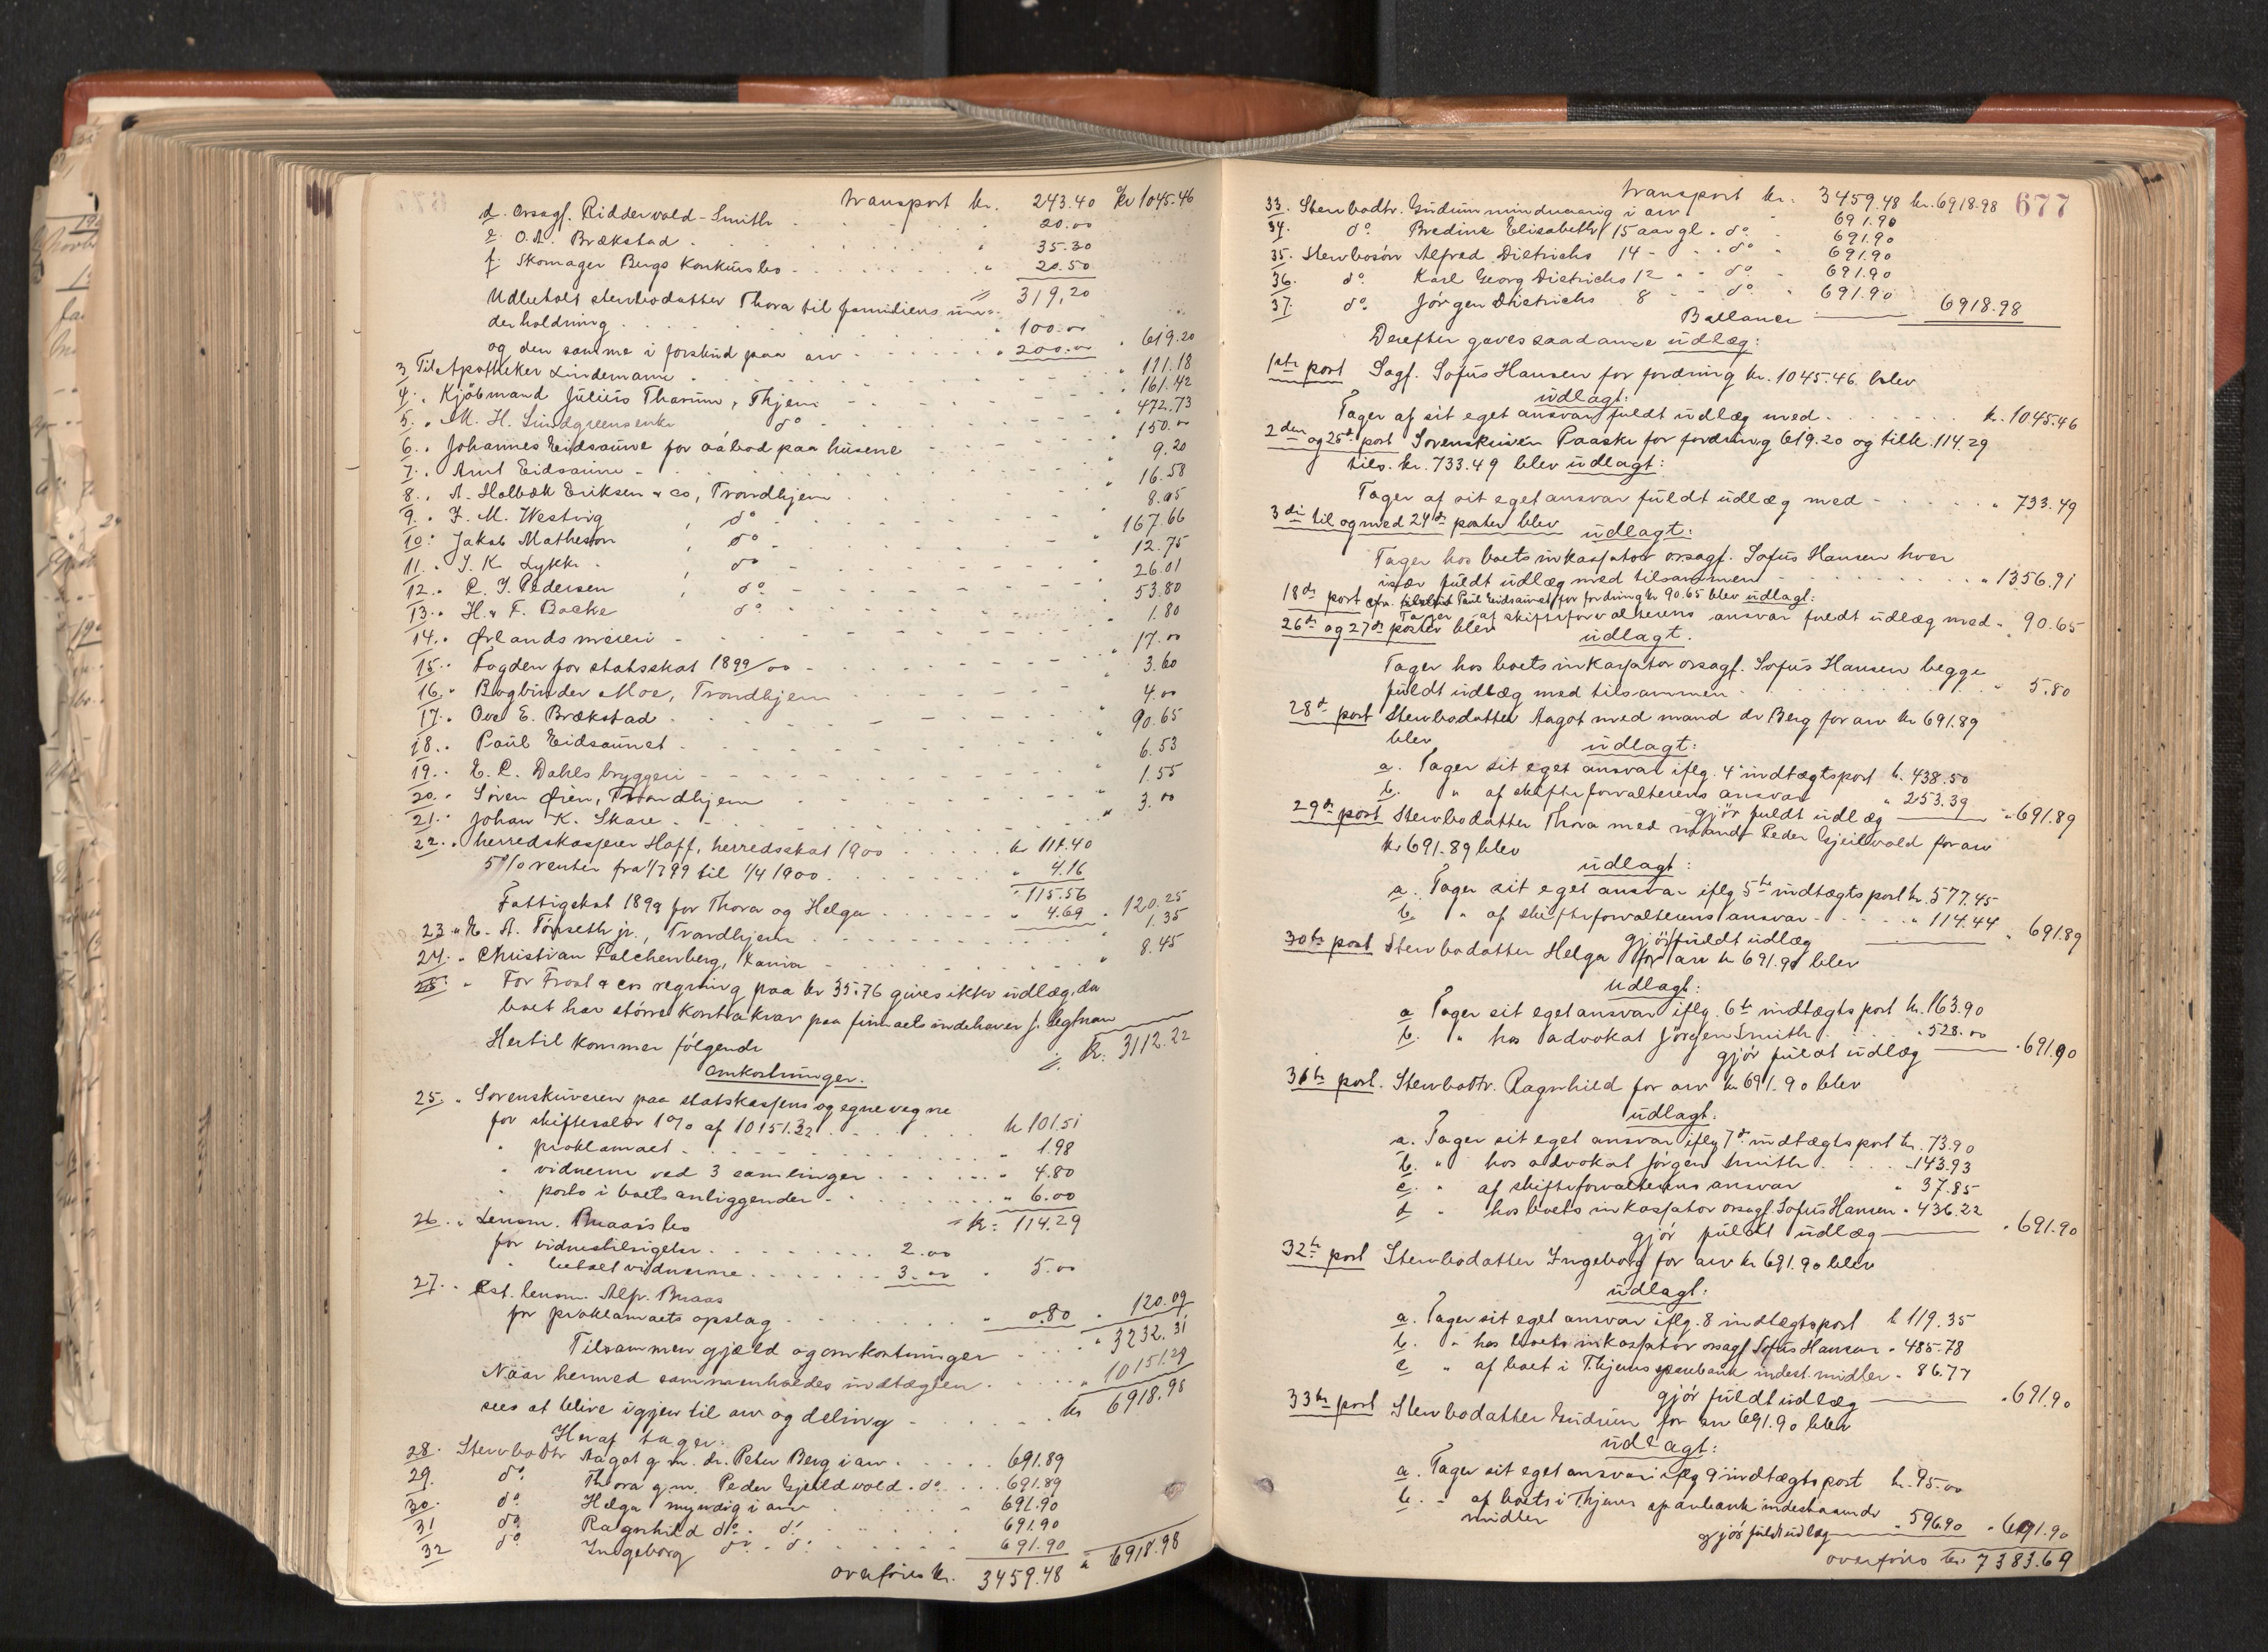 transport kr. 243.40 kr 1045.46
d. Orsagf. Riddervold-Smith 20.00
e. O.A. Brækstad 35.30
f. Skomager Bergs konkursbo 20.50
319,20
Udbetalt sterbodatter Thora til familiens un-
derholdning 100.00
og den samme i forskud paa arv 200.00 " 619.20
3. Til Apotheker Lindemann " 111.18
4. " Kjöbmand Julius Tharum, Thjem " 161.42
5. " M. H. Lundgreens enke do " 472.73
6. " Johannes Eidsaune for aabod paa husene " 150.00
7. " Arnt Eidsaune 9.20
8. " A. Holbæk Eriksen & co, Trondhjem " 16.58
9. " F. M. Westvig , do 8.05
10. " Jakob Matheson , do " 167.66
11. " J. K. Lykke , do 12.75
12. " C. J. Pedersen , do 26.01
13. " H. & F. Backe do 53.80
14. " Ørlands meieri 1.80
15. " Fogden for statsskat 1899/00 " 17.00
16. " Bogbinder Moe, Trondhjem 3.60
17. " Ove E. Brækstad 4.00
18. " Paul Eidsaunet 90.65
19. " E. C. Dahls bryggeri 6.53
20. " Sören Öien, Trondhjem 1.55
21. " Johan K. Skare " 3.00
22. " herredskasserer Hoff, herredsskat 1900 kr 111.40
5% renter fra 1/7 99 til 1/4 1900 " 4.16
" 115.56
Fattigskat 1899 for Thora og Helga " 4.69 " 120.25
23. " E. A. Tönseth jr., Trondhjem 1.35
24. " Christian Falchenberg, Kania " 8.45
25. " For Frost & cos regning paa kr 35.76 gives ikke udlæg, da
boet har större kontrakrav paa firmaets indehaver
kr. 3112.22
Hertil kommer fölgende
omkostninger.
25. " Sorenskriveren paa statskassens og egne vegne
for skiftesalær 1% af 10151.32 kr 101.51
" proklamaet " 1.98
" vidnerne ved 3 samlinger " 4.80
" porto i boets anliggender " 6.00
= kr. 114.29
26. " Lensm. Braas bo
for vidnetilsigelse 2.00
" betalt vidnerne 3.00 " 5.00
27. " Cst. lensm. Alfr. Braas
for proklamaets opslag " 0.80 " 120.09
Tilsammen gjæld og omkostninger " 3232.31
Naar hermed sammenholdes indtægten " 10151.29
sees at blive igjen til arv og deling kr 6918.98
Heraf tager:
28. Sterbodtr Aagot g.m. dr. Peter Berg i arv 691.89
29. do Thora g.m. Peder Gjeildvold. do 691.89
30. do Helga myndig i arv 691.90
31 do Ragnhild do. do 691.90
32 do Ingeborg do. do 691.90 " 6918.98
overföres kr. 3459.48
677
transport kr. 3459.48 kr. 6918.98
33. Sterbodtr. Gudrun mindreaarig i arv 691.90
34. do Bredine Elisabeth 15 aar gl. do 691.90
35. Sterbosön Alfred Dietrichs 14 - " do 691.90
36. do Karl Georg Dietrichs 12 " " do 691.90
37. do Jörgen Dietrichs 8 " " do 691.90
Ballance 6918.98
Derefter gaves saadanne udlæg:
1ste post Sagf. Sofus Hansen for fordring kr. 1045.46 blev
udlagt:
Tager af sit eget ansvar fuldt udlæg med kr. 1045.46
2den og 25de post Sorenskriver Paaske for fordring 619.20 og tillk. 114.29
tils. kr. 733.49 blev udlagt:
Tager af sit eget ansvar fuldt udlæg med " 733.49
3die til og med 24de poster blev udlagt:
Tager hos boets inkassator orsagf. Sofus Hansen hver
især fuldt udlæg med tilsammen " 1356.91
18de post Paul Eidsaunet for fordring kr 90.65 blev udlagt:
Tager af skifteforvalterens ansvar fuldt udlæg med " 90.65
26de og 27de poster blev udlagt.
Tager hos boets inkassator orsagf. Sofus Hansen begge
fuldt udlæg med tilsammen " 5.80
28de post Sterbodatter Aagot med mand dr Berg for arv kr 691.89
blev udlagt:
a. Tager sit eget ansvar iflg. 4de indtægtspost kr. 438.50
b. " af skifteforvalterens ansvar " 253.39
gjör fuldt udlæg " 691.89
29de post Sterbodatter Thora med mand Peder Gjeildvold for arv
kr 691.89 blev udlagt:
a. Tager sit eget ansvar iflg 5te indtægtspost kr. 577.45
b. " af skifteforvalterens ansvar " 114.44
gjör fuldt udlæg " 691.89
30te post Sterbodatter Helga for arv kr 691.90 blev
udlagt:
a Tager sit eget ansvar iflg. 6te indtægtspost kr. 163.90
b. " hos advokat Jörgen Smith " 528.00
gjör fuldt udlæg " 691.90
31te post. Sterbodtr. Ragnhild for arv kr 691.90 blev
udlagt.
a. Tager sit eget ansvar iflg 7de indtægtspost kr. 73.90
b. " hos advokat Jörgen Smith " 143.93
c. " af skifteforvalterens ansvar " 37.85
d " hos boets inkassator orsagf. Sofus Hansen " 436.22
gjör fuldt udlæg " 691.90
32te post Sterbodatter Ingeborg for arv kr 691.90 blev
udlagt:
a. Tager sit eget ansvar iflg. 8 indtægtspost k 119.35
b. " hos boets inkassator orsagf Sofus Hansen " 485.78
c " af boet i Thjems sparebank indest. midler " 86.77
gjör fuldt udlæg " 691.90
33te post Sterbodatter Gudrun for arv 691.90 blev
udlagt:
a. Tager sit eget ansvar iflg 9 indtægtspost kr. 95.00
b. " af boets i Thjems sparebank indestaaende
midler " 596.90 " 691.90
gjör fuldt udlæg
overföres kr. 7383.69